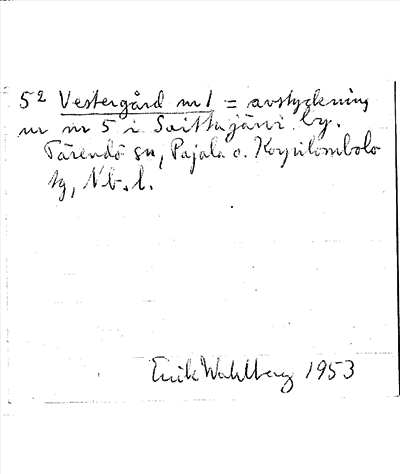 5² Vestergård nr 1 = avstyckning
nr nr 5 i Saittajärvi by.
Tärendö sn, Pajala o. Korpilombolo
tg, Nb. l.
Erik Wahlberg 1953